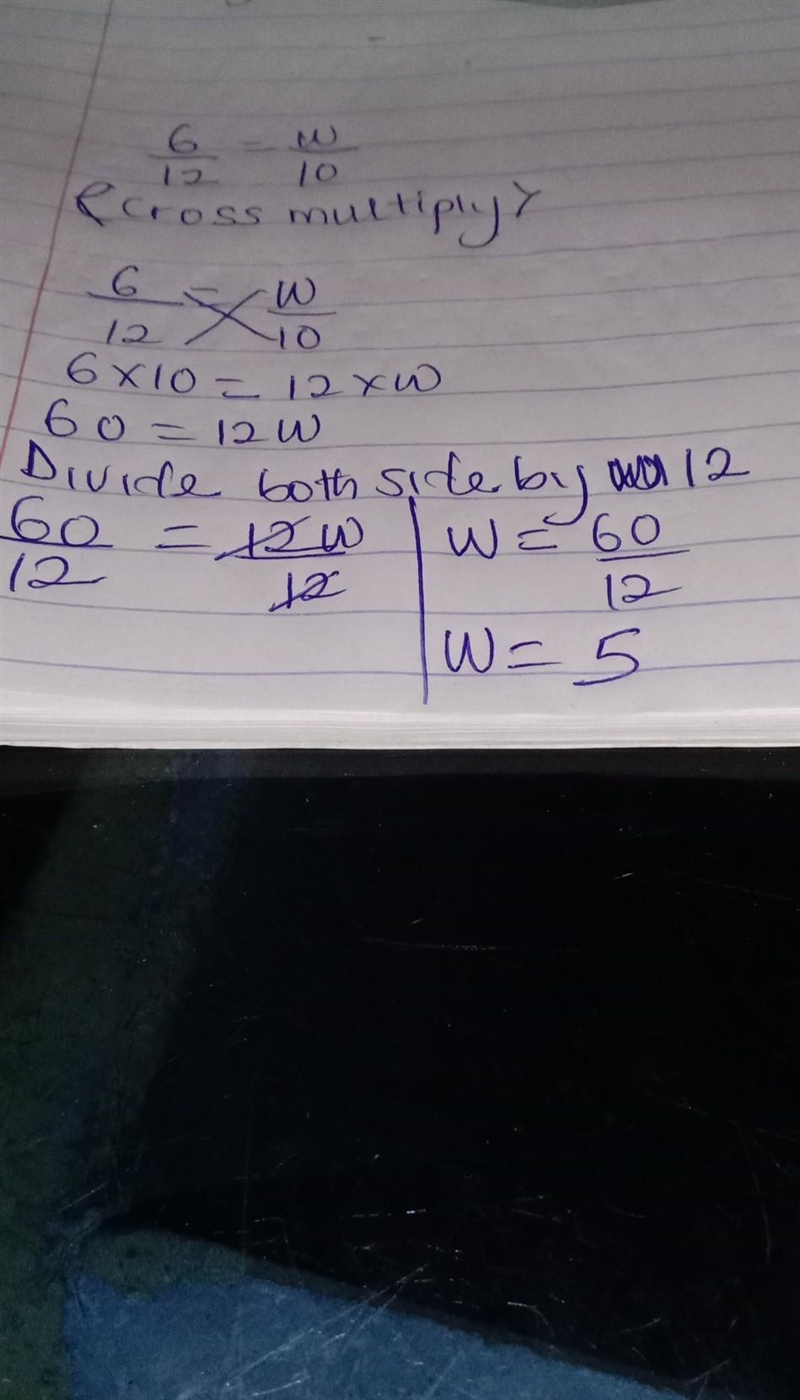 6/12 = w/10
(cross multiply)
6/12 = w/10
6 × 10 = 12 × w
60 = 12w
Divide both side by 12
60/12 = 12w/12
w = 60/12
w = 5